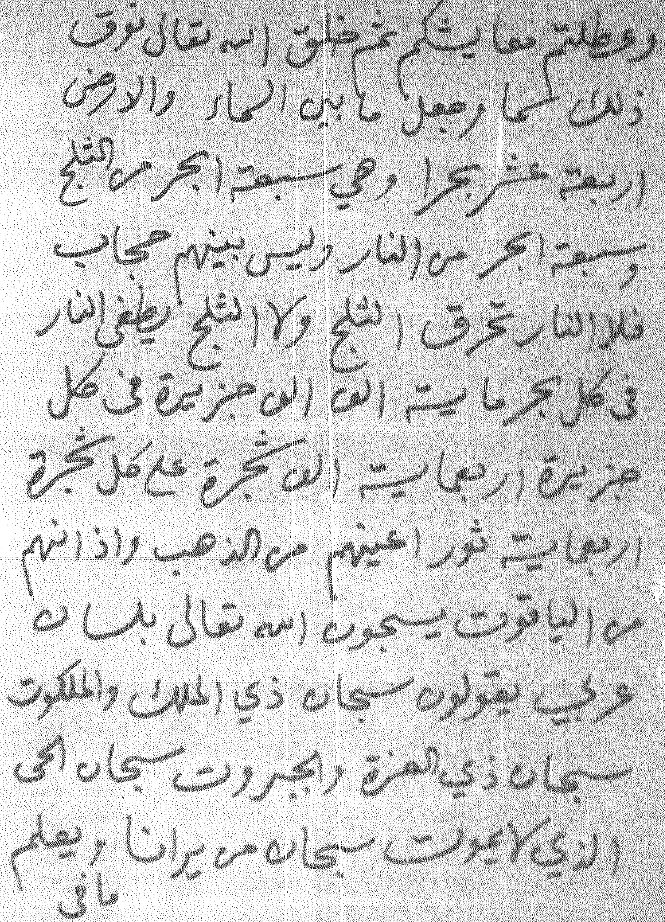 وعطلتم معايشكم ثم خلق الله تعالى فوق
ذلك سما وجعل ما بين السماء والارض
اربعة عشر بحرا وهي سبعة ابحر من الثلج
وسبعة ابحر من النار وليس بينهم حجاب
فلا النار تحرق الثلج ولا الثلج يطفى النار
فى كل بحر ماية الف الف جزيرة فى كل
جزيرة اربعماية الف شجرة على كل شجرة
اربعماية ثور اعينهم من الذهب واذانهم
من الياقوت يسبحون الله تعالى بلسان
عربي يقولون سبحان ذي الملك والملكوت
سبحان ذي العزة والجبروت سبحان الحى
الذي لا يموت سبحان من يرانا ويعلم
ما فى